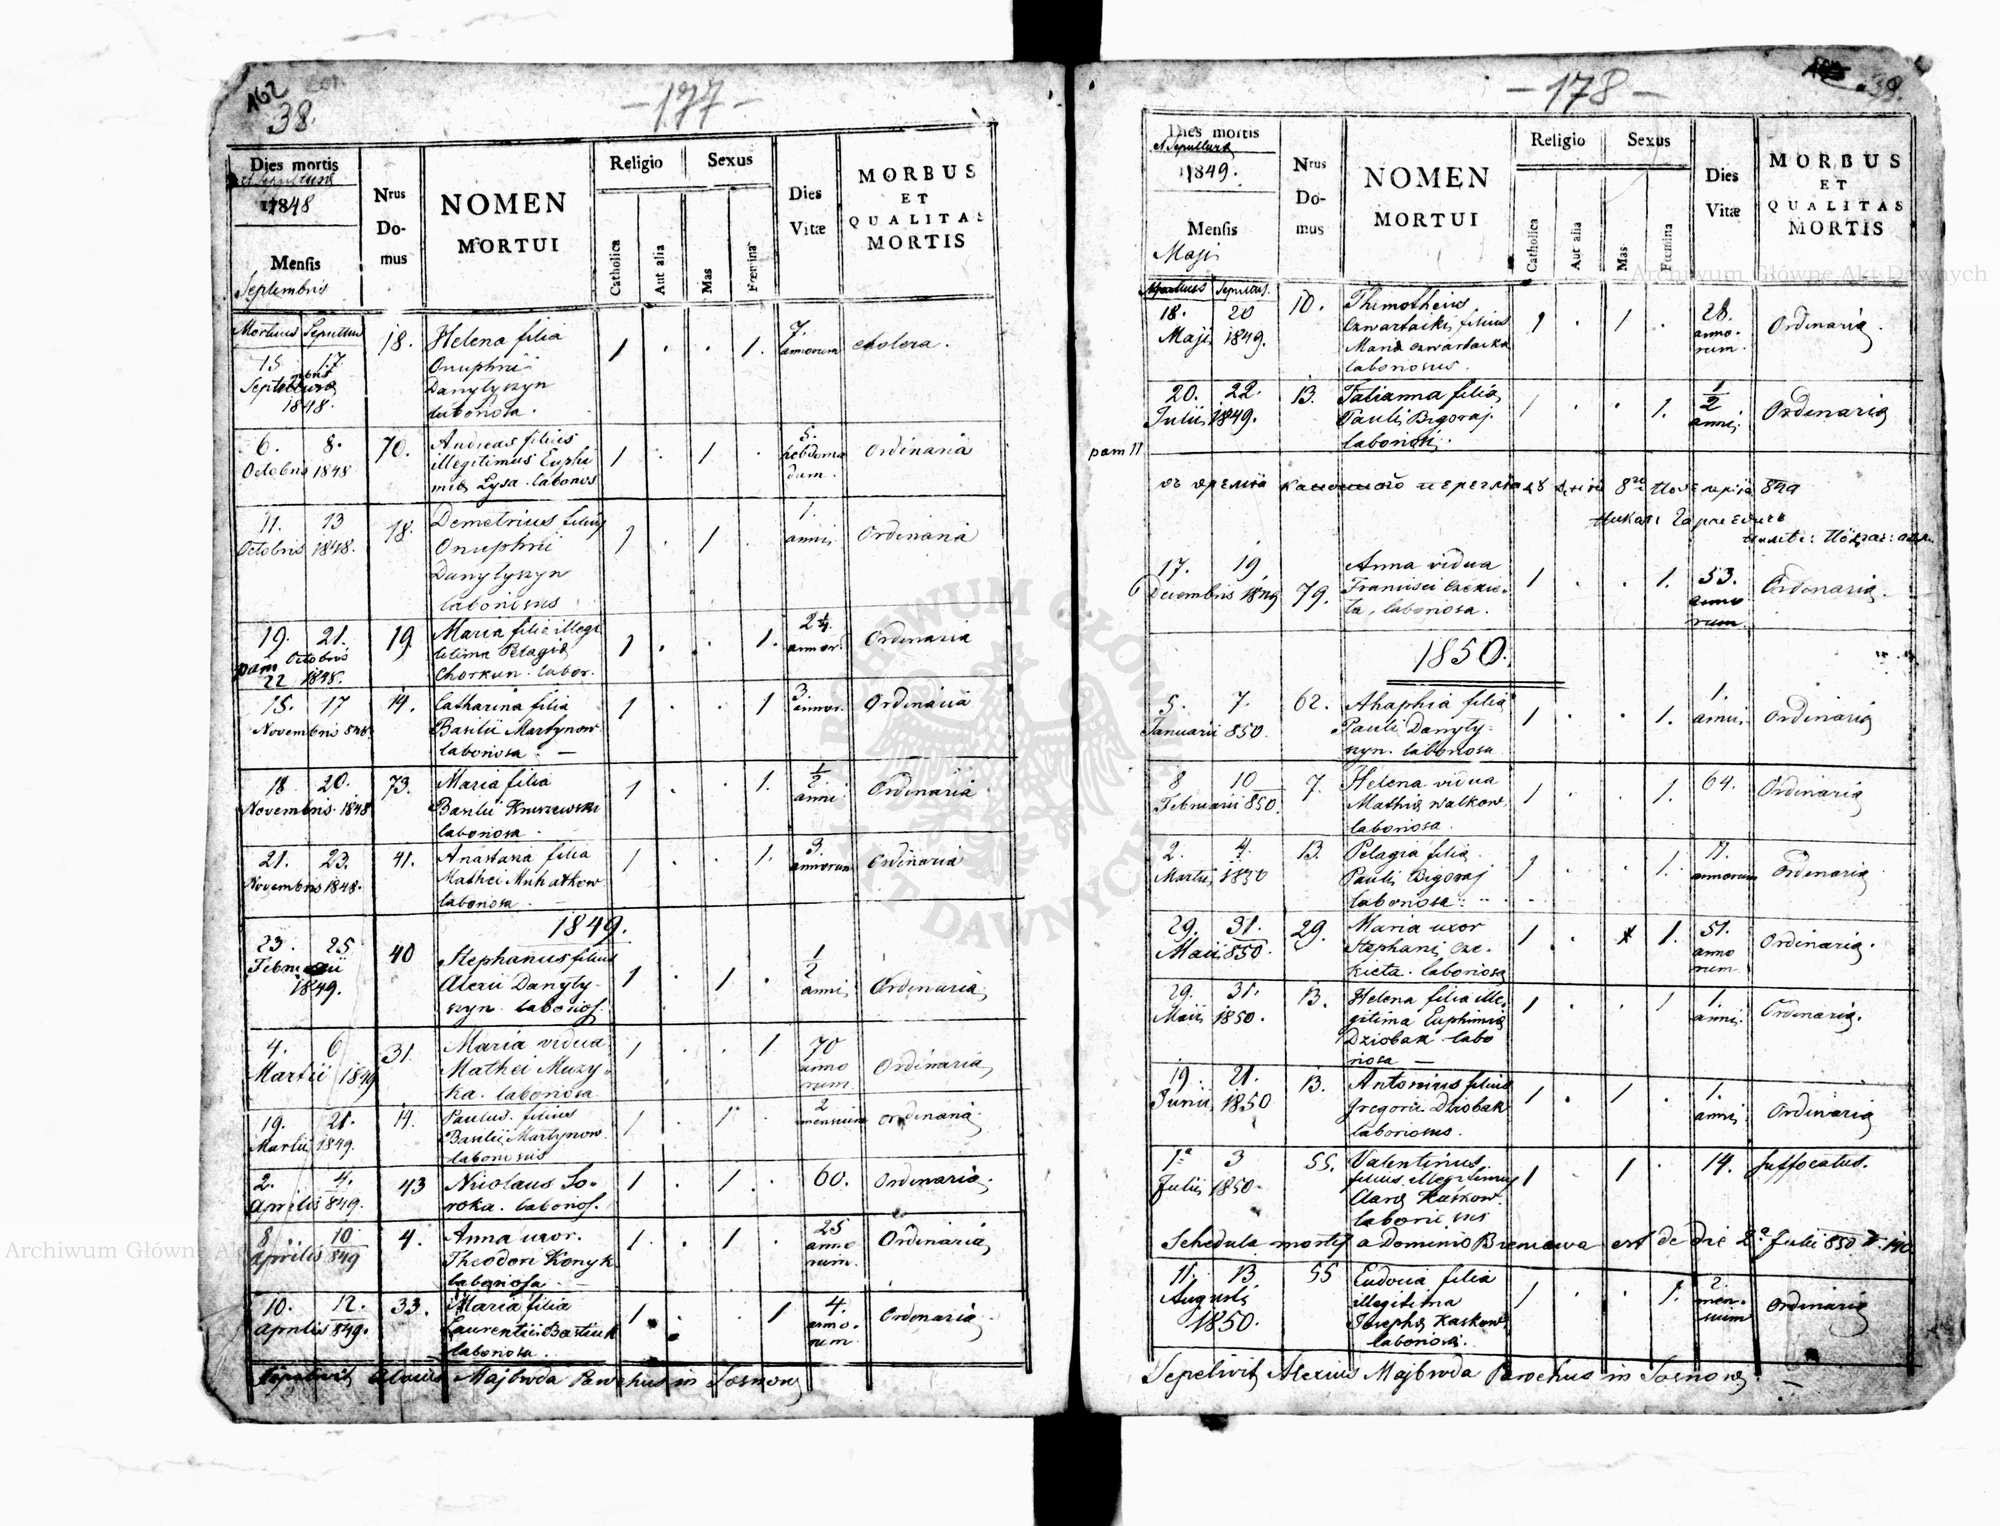 162
38.
- 177 -
Dies mortis
et Sepulturæ
1848
Mensis
Septembris
Nrus
Do-
mus
NOMEN
MORTUI
Religio
Catholica
Aut alia
Sexus
Mas
Fœmina
Dies
Vitæ
MORBUS
ET
QUALITAS
MORTIS
Mortuus Sepultus
15 17
Septembris
1848.
18.
Helena filia
Onuphrii
Danylyszyn
laboriosa.
1 . . 1.
7.
annorum
cholera.
6. 8.
Octobris 1848
70.
Andreas filius
illegitimus Euphi
miæ Lysa. laborios
1 . 1 .
5.
hebdoma
dum.
Ordinaria
11. 13
Octobris 1848.
18.
Demetrius filius
Onuphrii
Danylyszyn
laboriosus
1 . 1 .
1.
anni
Ordinaria
19. 21.
Octobris
pam 22 1848.
19
Maria filia illegi
tima Pelagiæ
Chorkun. labor.
1 . . 1.
2
annor.
Ordinaria
15. 17
Novembris 848
14.
Catharina filia
Basilii Martynow
laboriosa. —
1 . . 1
3.
annor.
Ordinaria
18. 20.
Novembris. 1848
73.
Maria filia
Basilii
laboriosa.
1 . . 1.
1/2
anni
Ordinaria
21. 23.
Novembris 1848.
41.
Anastasia filia
Mathei Muhatkow
laboriosa. —
1 . . 1.
3.
annorum
Ordinaria
1849.
23. 25
Februarii
1849.
40
Stephanus filius
Alexii Danyly-
szyn laborios.
1 . 1 .
1/2
anni
Ordinaria
4. 6
Martii 1849
31.
Maria vidua
Mathei Muzy-
ka. laboriosa
1 . . 1
70
anno
rum
Ordinaria
19. 21.
Martii 1849.
14.
Paulus. filius
Basilii Martynow.
laboriosus
1 . 1 .
2
mensium
Ordinaria
2. 4.
Aprilis 849.
43
Nicolaus So-
roka. laborios.
1 . 1 .
60.
Ordinaria.
8. 10
Aprilis 849
4.
Anna uxor.
Theodori Konyk
laboriosa —
1 . 1 .
25
anno
rum.
Ordinaria
10. 12.
Aprilis 849.
33.
Maria filia
Laurentii Bartiuk
laboriosa.
1 . . 1
4.
anno-
rum
Ordinaria
Sepelivit Alexius Majbroda Parochus in Sosnow
- 178 -
39.
Dies mortis
et Sepulturæ
1849.
Mensis
Maji
Nrus
Do-
mus
NOMEN
MORTUI
Religio
Catholica
Aut alia
Sexus
Mas
Fœmina
Dies
Vitæ
MORBUS
ET
QUALITAS
MORTIS
Mortuus Sepultus.
18. 20
Maji 1849.
10.
Thimotheus
Czwartacki filius
Mariæ Czwartacka
laboriosus.
1 . 1 .
28.
anno-
rum.
Ordinaria.
20. 22.
Julii 1849.
13.
Tatianna filia
Pauli Bigoraj.
laboriosi.
1 . . 1.
1/2
anni
Ordinaria
pam 11
17. 19
6 Decembris 1849
79.
Anna vidua
Francisci Czekie-
ta, laboriosa.
1 . . 1.
53.
anno
rum
Ordinaria.
1850.
5. 7.
Januarii 850.
62.
Ahaphia filia
Pauli Danyly-
szyn. laboriosa
1 . . 1.
1.
anni
Ordinaria
8 10
Februarii 850.
7.
Helena vidua
Mathiæ Walkow.
laboriosa.
1 . . 1.
64.
Ordinaria
2. 4.
Martii 1850
13.
Pelagia filia.
Pauli Bigoraj
laboriosa.
1 . . 1.
11.
annorum
Ordinaria
29. 31.
Maii 850.
29.
Maria uxor
Stephani Cze-
kieta. laboriosa
1 . 1.
51.
anno
rum
Ordinaria.
29. 31.
Maii 1850.
13.
Helena filia ille-
gitima Euphimiæ
Dziobak labo
riosa —
1 . . 1
1.
anni.
Ordinaria.
19. 21.
Junii 1850
13.
Antonius filius
Gregorii Dziobak
laboriosus.
1 . 1 .
1.
anni
Ordinaria
1a 3
Julii 1850.
55.
Valentinus
filius illegitimus
Claræ Kaskow
laboriosus
1 . 1 .
14.
Suffocatus.
Schedula mortis a Dominio Breniawa est de die 2a Julii 850 N. 140
11. 13.
Augusti
1850.
55
Eudocia filia
illegitima
Josephæ Kaskow
laboriosa.
1 . . 1.
2.
men-
sium
Ordinaria
Sepelivit Alexius Majbroda Parochus in Sosnow.
Archiwum Główne Akt Dawnych
ARCHIWUM GŁÓWNE AKT DAWNYCH